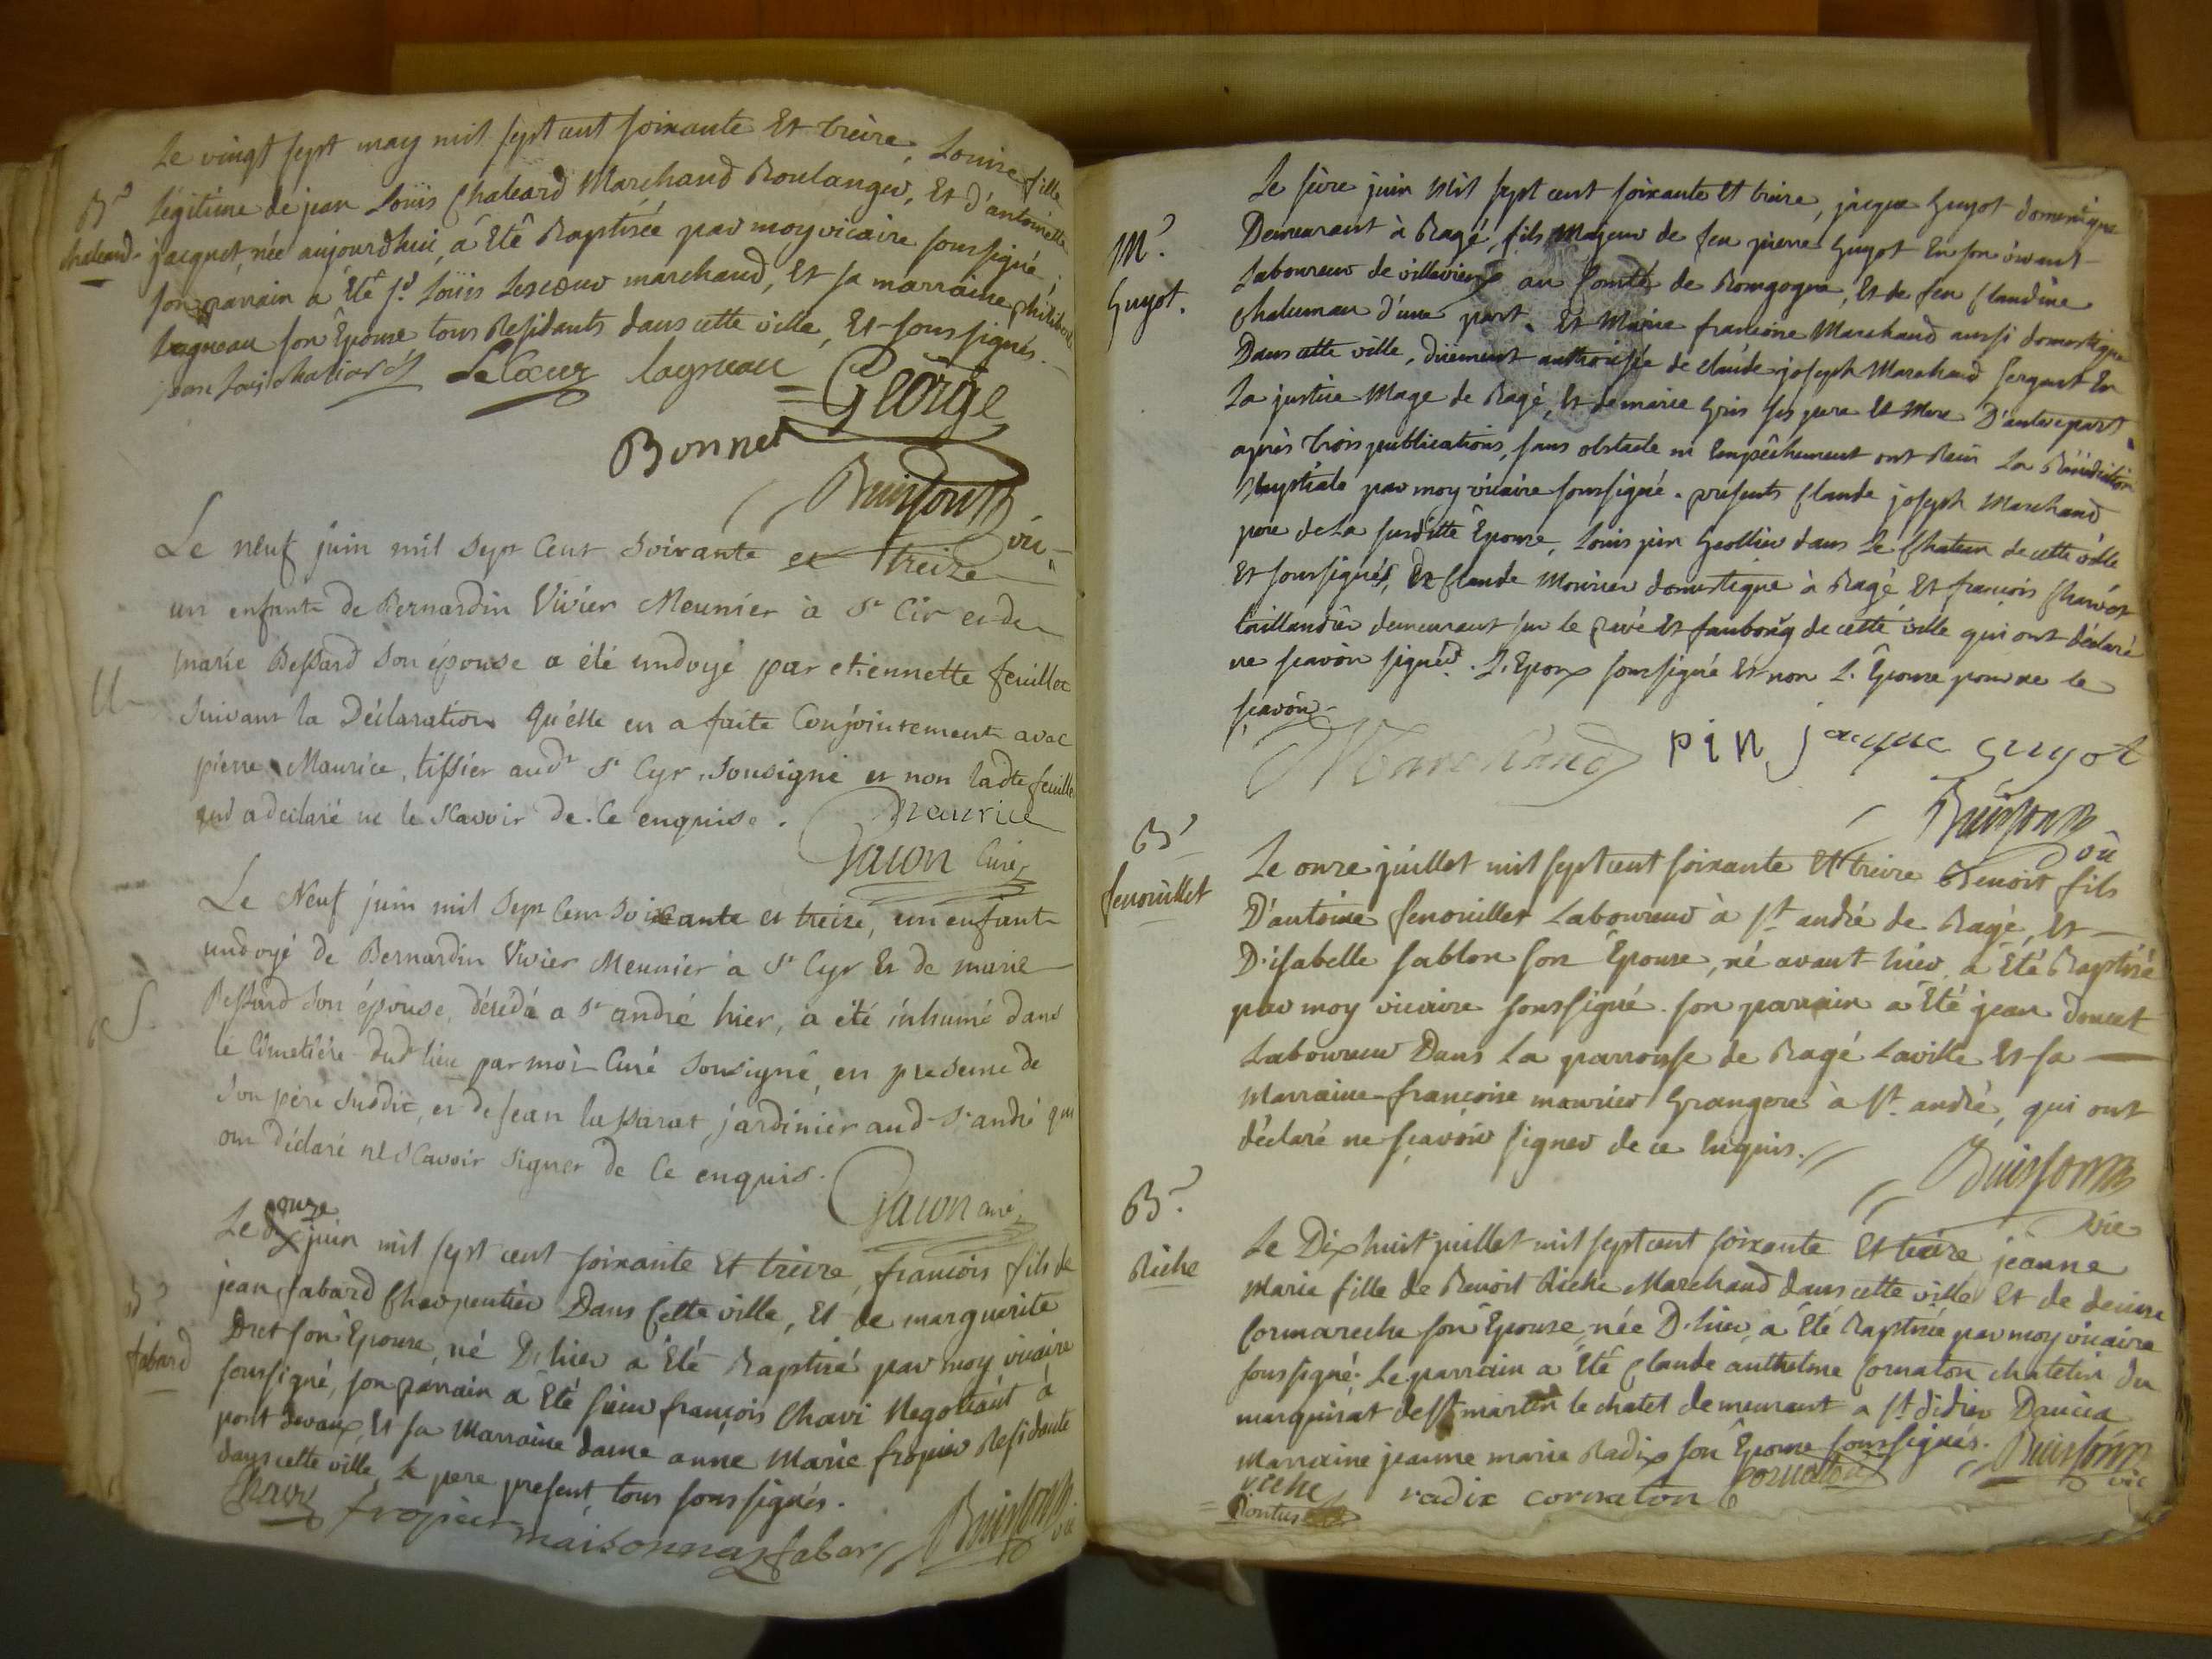 Le vingt sept may mil sept cent soixante Et treize, Louise fille
Bs
légitime de jean Loüis Chaleard Marchand Boulanger, Et d'antoinette
chaleard
jacquet, née aujourdhui, a Eté Baptisée par moy vicaire soussigné
son parrain a Eté sr. Loüis Lescœur marchand, Et sa marraine philiberte
Lagneau son Epouse tous Residants dans cette ville, Et soussignés.
jean Loüis chaliard LeCœur lagneau = George
Bonnet
Buisson vic
Le neuf juin mil sept Cent Soixante et treize
un enfant de Bernardin Vivier Meunier à St Cir et de
marie Bessard son épouse a été undoyé par etiennette feuillet
U
Suivant la Déclaration qu'elle en a faite Conjointement avec
pierre Maurice, tissier audt St Cyr, Sousigné et non ladte feuillet
qui a déclaré ne le Scavoir de Ce enquise. Maurice
Gacon Curé
Le Neuf juin mil Sept Cent Soixante et treize, un enfant
undoyé de Bernardin Vivier Meunier à St Cyr Et de marie
Bessard Son épouse, décédé a St andré hier, a été inhumé dans
S.
le Cimetière dudt lieu par moi Curé Sousigné, en presence de
Son père Susdit, et de Jean lassarat jardinier audt St andré qui
ont déclaré ne Scavoir Signer de Ce enquis.
Gacon curé
onze
Le dix juin mil sept cent soixante Et treize, francois fils de
jean fabard Charpentier Dans Cette ville, Et de marguerite
B?
Dret son Epouse, né D'hier a Eté Baptisé par moy vicaire
fabard
soussigné, son parrain a Eté sieur françois Chavi Negotiant à
pont devaux, Et sa Marraine dame anne Marie fropier Residante
dans cette ville, le pere present, tous soussignés.
Chavy fropier maisonnas fabar Buisson vic
Le seize juin Mil sept cent soixante Et treize, jacque Guyot domestique
M?
Demeurant à Bagé, fils Majeur de feu pierre Guyot En son vivant
Guyot.
Laboureur de villevieux au Comté de Bourgogne, Et de feu Claudine
Chalumeau d'une part. Et Marie francoise Marchand aussi domestique
Dans cette ville, düement authorisée de claude joseph Marchand sergent En
La justice Mage de Bagé, Et de marie Gris ses pere Et Mere D'autre part
après trois publications, sans obstacle ni Empêchement ont Recu La Bénédiction
Nuptiale par moy vicaire soussigné. presents Claude joseph Marchand
pere de La susditte Epouse, Louis pin Geollier dans Le Chateau de cette ville
Et soussignés, Et Claude Mourier domestique à Bagé Et françois Charvét
taillandier demeurant sur le pavé Et faubourg de cette ville qui ont déclaré
ne sçavoir signer. L'Epoux soussigné Et non L'Epouse pour ne le
sçavoir.
Marchand pin jacque Guyot
Buisson vic
B?
Le onze juillet mil sept cent soixante Et treize Benoit fils
fenoüillet
D'antoine fenouillet Laboureur à St. andré de Bagé, Et
D'isabelle sablon son Epouse, né avant hier, a Eté Baptisé
par moy vicaire soussigné. son parrain a Eté jean doucet
Laboureur Dans La parroisse de Bagé Laville Et sa
Marraine françoise maurier Grangere à St. andré, qui ont
déclaré ne sçavoir signer de ce Enquis.
Buisson vic
B?
Le Dix huit juillet mil sept cent soixante Et treize jeanne
Riche
Marie fille de Benoit Riche Marchand dans cette ville Et de denise
Cormareche son Epouse, née D'hier, a Eté Baptisée par moy vicaire
soussigné. Le parrain a Eté Claude anthelme Cornaton chatelin du
marquisat de St martin le chatel demeurant a St. didier Daucia
Marraine jeanne marie Radix son Epouse soussignés. Buisson vic
riche radix cornaton Cornaton
= Pontus